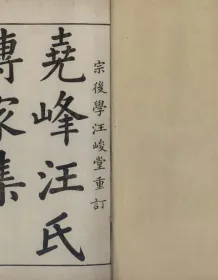 宗後學汪峻堂重訂
堯峰汪氏
傳家集